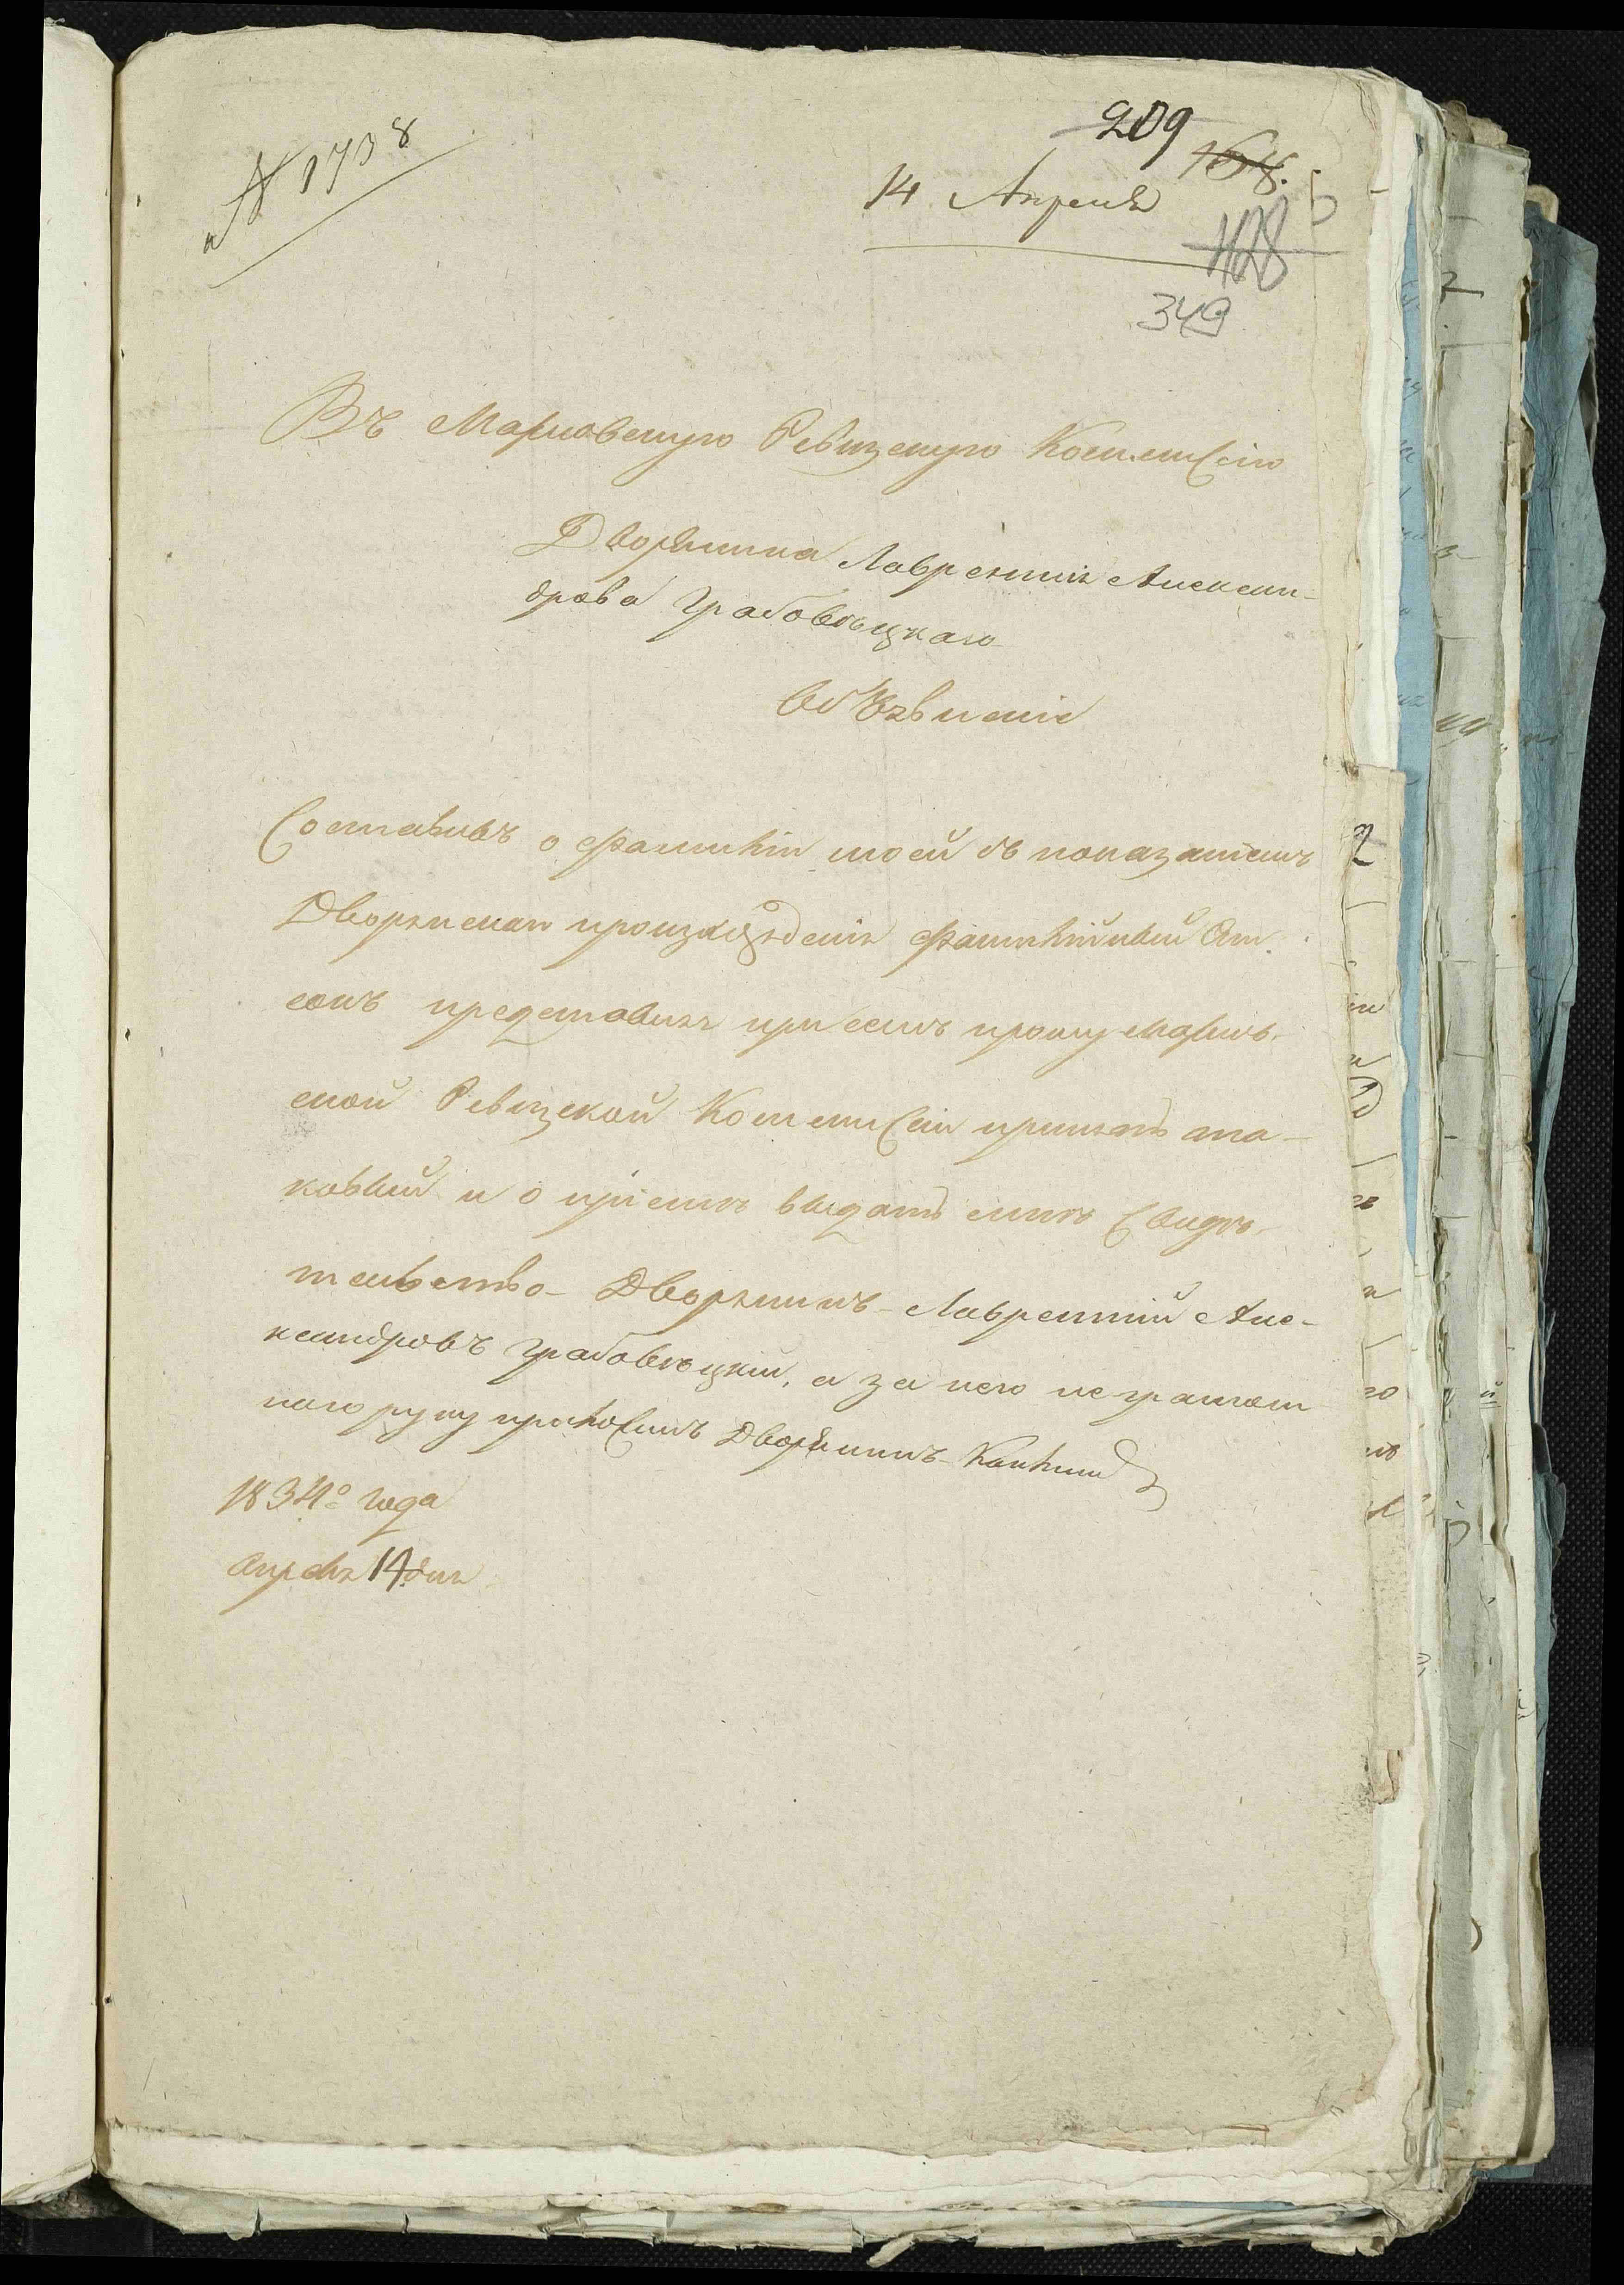 № 1738
209
168.
14 Апреля
428
349
Въ Марковскую Ревизскую Коммисію
Дворянина Лаврентія Алексан-
дрова Грабовѣцкаго
Объявленіе
Составивъ о фамиліи моей съ показаніемъ
Дворянскаго произхожденія фамилійный Спи
сокъ представляя при семъ прошу Марков-
ской Ревизской Коммисіи принять та-
ковый и о пріемѣ выдать мнѣ Свидѣ-
тельство - Дворянинъ Лаврентій Але-
ксандровъ Грабовѣцкій, а за него не грамот
наго руку приложилъ Дворянинъ
1834го года
Апреля 14 дня